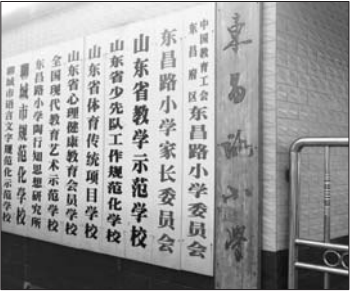 東昌路小学
中国教育工会
东昌府区
东昌路小学委员会
东昌路小学家长委员会
山东省教学示范学校
山东省少先队工作规范化学校
山东省体育传统项目学校
山东省心理健康教育会员学校
全国现代教育艺术示范学校
东昌路小学陶行知思想研究所
聊城市规范化学校
聊城市语言文字规范化示范学校